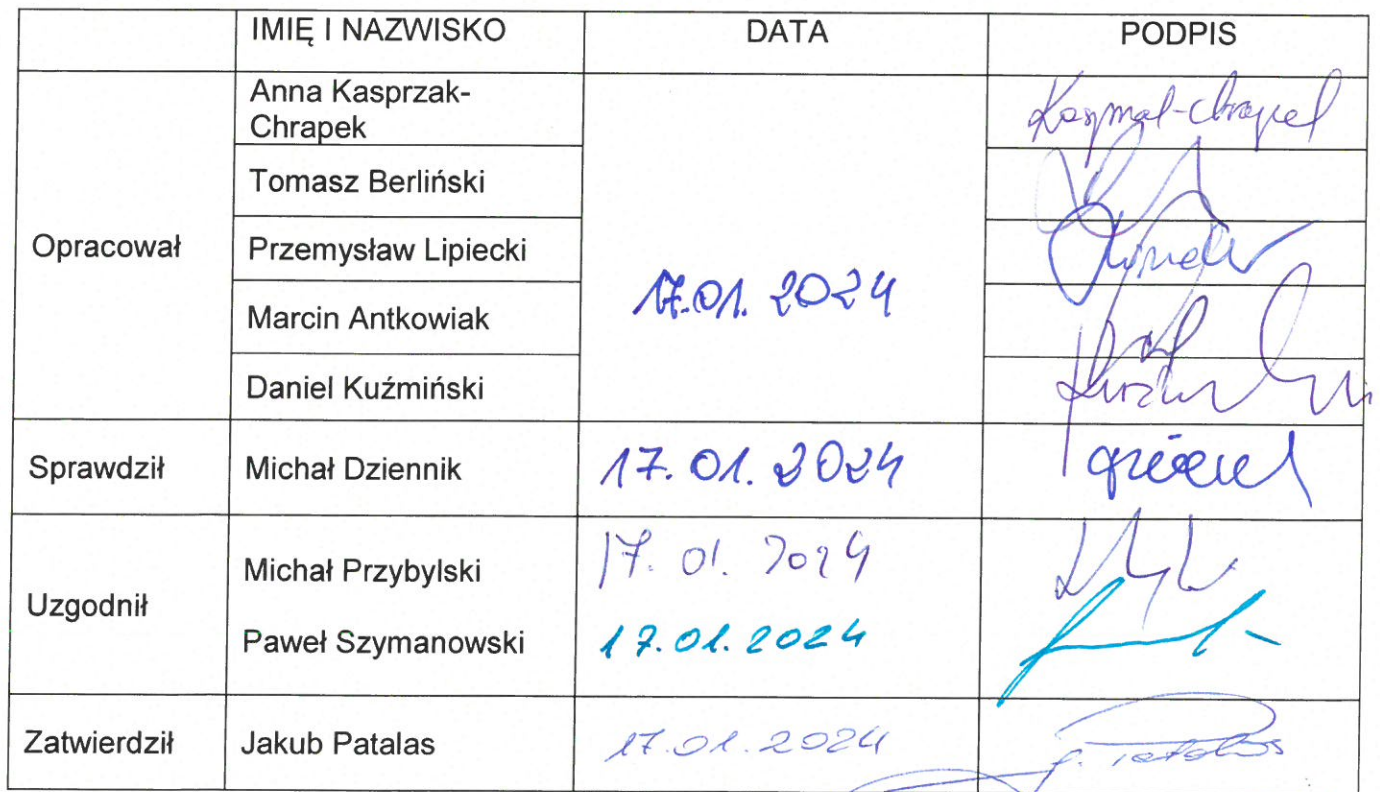 IMIĘ I NAZWISKO DATA PODPIS
Anna Kasprzak-
Chrapek
Kasprzak-Chrapek
Tomasz Berliński
Opracował Przemysław Lipiecki
17.01.2024
Marcin Antkowiak
Daniel Kuźmiński
Sprawdził Michał Dziennik 17.01.2024
Uzgodnił
Michał Przybylski 17.01.2024
Paweł Szymanowski 17.01.2024
Zatwierdził Jakub Patalas 17.01.2024 J. Patalas